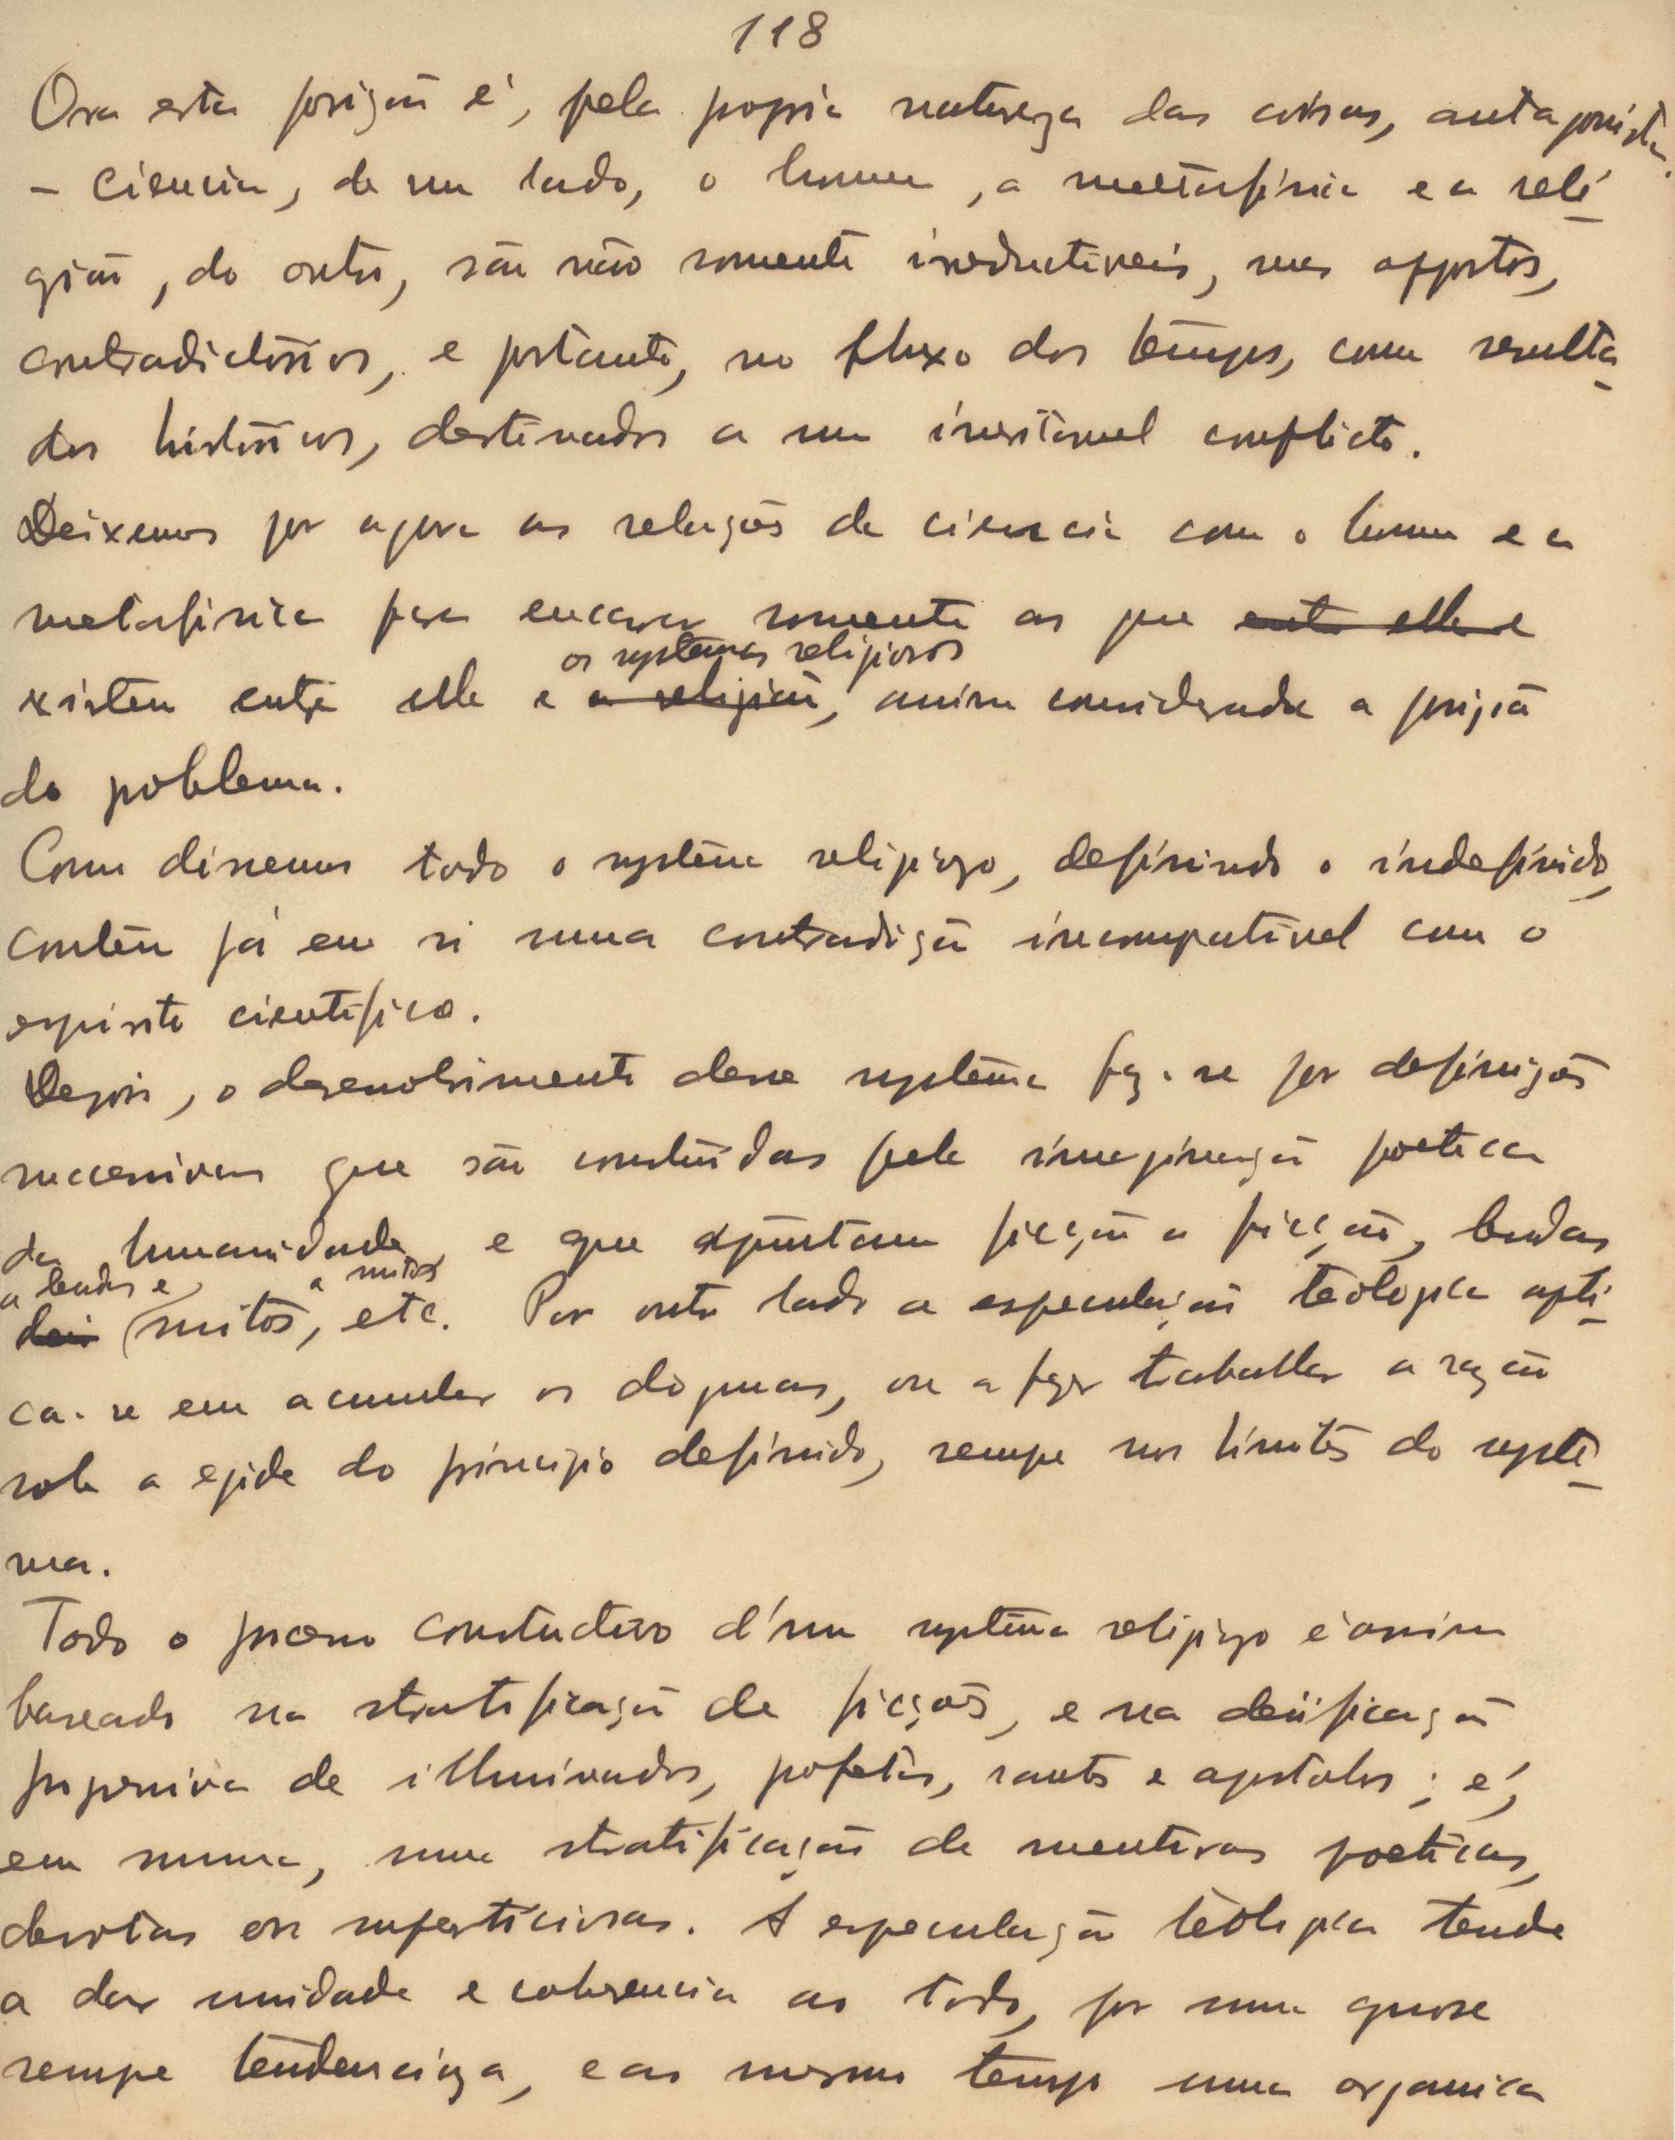 118
Ora esta posição é, pela propria natureza das coisas, antagonista.
– Ciencia, de um lado, o homem, a metafisica e a reli-
gião, do outro, são não somente irreductiveis, mas oppostos,
contradictorios, e portanto, no fluxo dos tempos, como resulta-
dos historicos, destinados a um inevitavel conflicto.
Deixemos por agora as relações da ciencia com o homem e a
metafisica para encarar somente as que entre ella e
os systemas religiosos
existem entre ella e a religião, assim considerada a posição
do problema.
Como dissemos todo o systema religiozo, definindo o indefinido,
contem já em si uma contradição incompativel com o
espirito cientifico.
Depois, o desenvolvimento desse systema faz-se por definições
successivas que são construidas pela imaginação poetica
da humanidade, e que ajuntam ficção a ficção, lendas
a lendas e a mitos
mitos, etc. Por outro lado a especulação teologica apli-
ca-se em acumular os dogmas, ou a fazer trabalhar a razão
sob a egide do principio definido, sempre nos limites do syste-
ma.
Todo o processo constructivo d'um systema religiozo é assim
baseado na stratificação de ficções, e na deificação
progressiva de illuminados, profetas, santos e apostolos; é,
em summa, uma stratificação de mentiras poeticas,
devotas ou supersticiosas. A especulação teologica tende
a dar unidade e coherencia ao todo, por uma quase
sempre tendencioza, e ao mesmo tempo uma organica